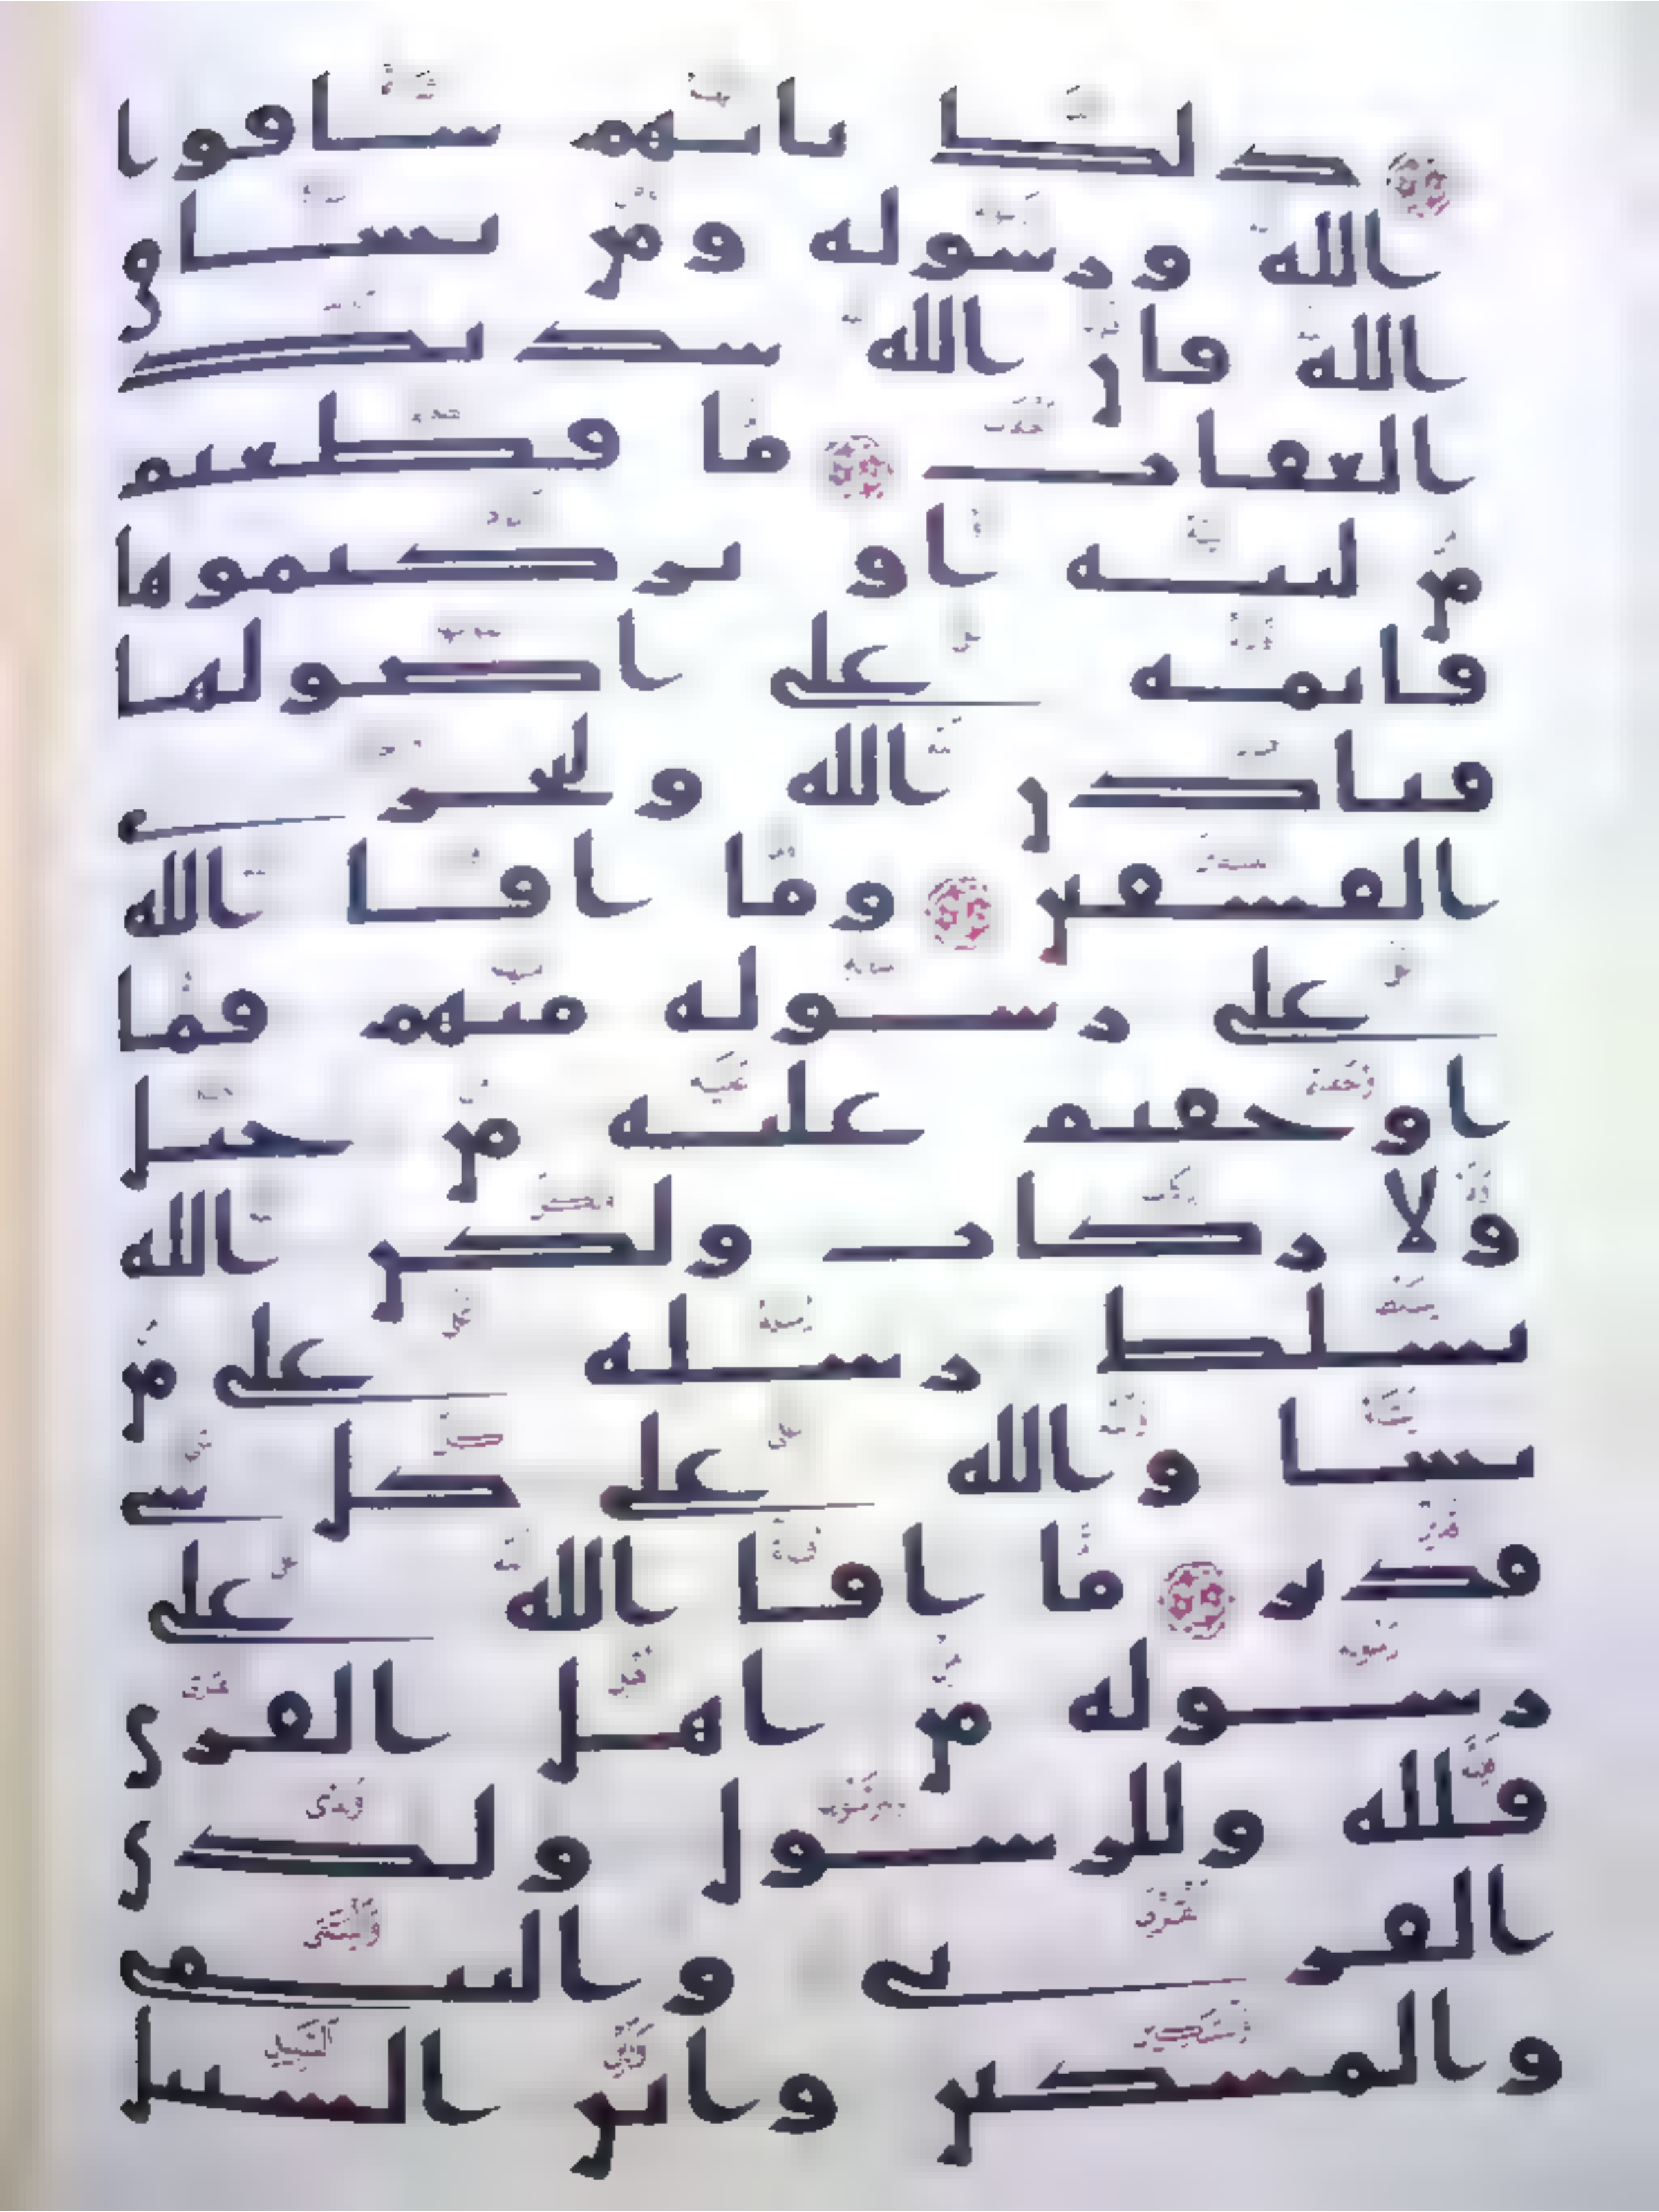 ذلك بانهم شاقوا
الله ورسوله ومن يشاق
الله فان الله شديد
العقاب ما قطعتم
من لينه او تركتموها
قايمه على اصولها
فباذن الله وليخزي
الفسقين وما افا الله
على رسوله منهم فما
اوجفتم عليه من خيل
ولا ركاب ولكن الله
يسلط رسله على من
يشا والله على كل شي
قدير ما افا الله على
رسوله من اهل القرى
فلله وللرسول ولذي
القربى واليتمى
والمسكين وابن السبيل